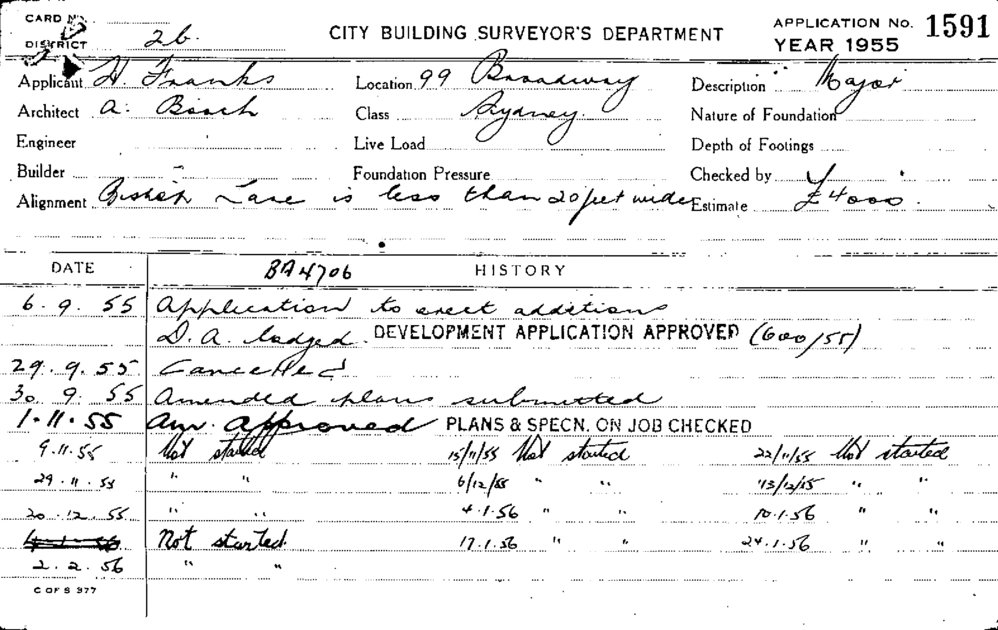 CARD No.
DISTRICT 26.
CITY BUILDING SURVEYOR'S DEPARTMENT
APPLICATION No. 1591
YEAR 1955
Applicant H. Franks Location 99 Broadway Description Major
Architect A. Bosch Class Sydney. Nature of Foundation
Engineer Live Load Depth of Footings
Builder - Foundation Pressure Checked by
Alignment Lane is less than 20 feet wide Estimate £4000.
DATE BA4706 HISTORY
6. 9. 55 Application to erect additions
D.A. lodged. DEVELOPMENT APPLICATION APPROVED (600/55)
29. 9. 55 Cancelled
30. 9. 55 Amended plans submitted
1.11.55 am. approved PLANS & SPECN. ON JOB CHECKED
9.11.55 Not started 15/11/55 Not started 22/11/55 Not started
29.11.55 " " 6/12/55 " " 13/12/55 " "
20.12.55 " " 4.1.56 " " 10.1.56 " "
4.1.56 Not started 17.1.56 " " 24.1.56 " "
2.2.56 " "
C OF S 377